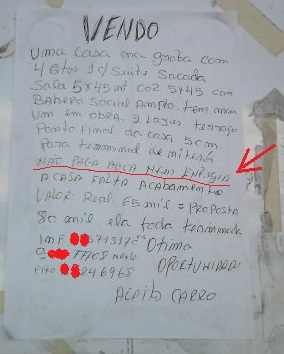 VENDO
UMA CASA NA GROTA COM
4 QTOS 1 C/ SUITE SACADA
SALA 5X45 mt COZ 5X45 COM
BANHERO SOCIAL AMPLO. TEM MAIS
UM EM OBRA. 2 LAJES TERRAÇO
PONTO FINAL DA CASA 5cm
PARA TERMINAL DE
NÃO PAGA AGUA NEM ENERGIA
A CASA FALTA ACABAMENTO
VALOR REAL 65 MIL = PROPOSTA
80 MIL ELA TODA TERMINADA
OTIMA
246968 OPORTUNIDADE
ACEITO CARRO